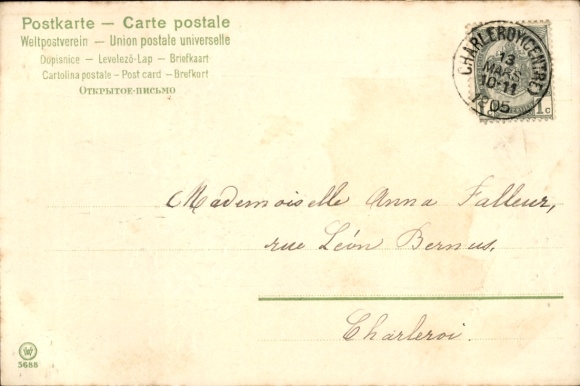 Postkarte — Carte postale
Weltpostverein — Union postale universelle
Dopisnice — Levelező-Lap — Briefkaart
Cartolina postale - Post card - Brefkort
Открытое-письмо
CHARLEROY (CENTRE)
13
MARS
10-11
1905
1 c
Mademoiselle Anna Falleur,
rue Léon Bernus.
Charleroi.
5688